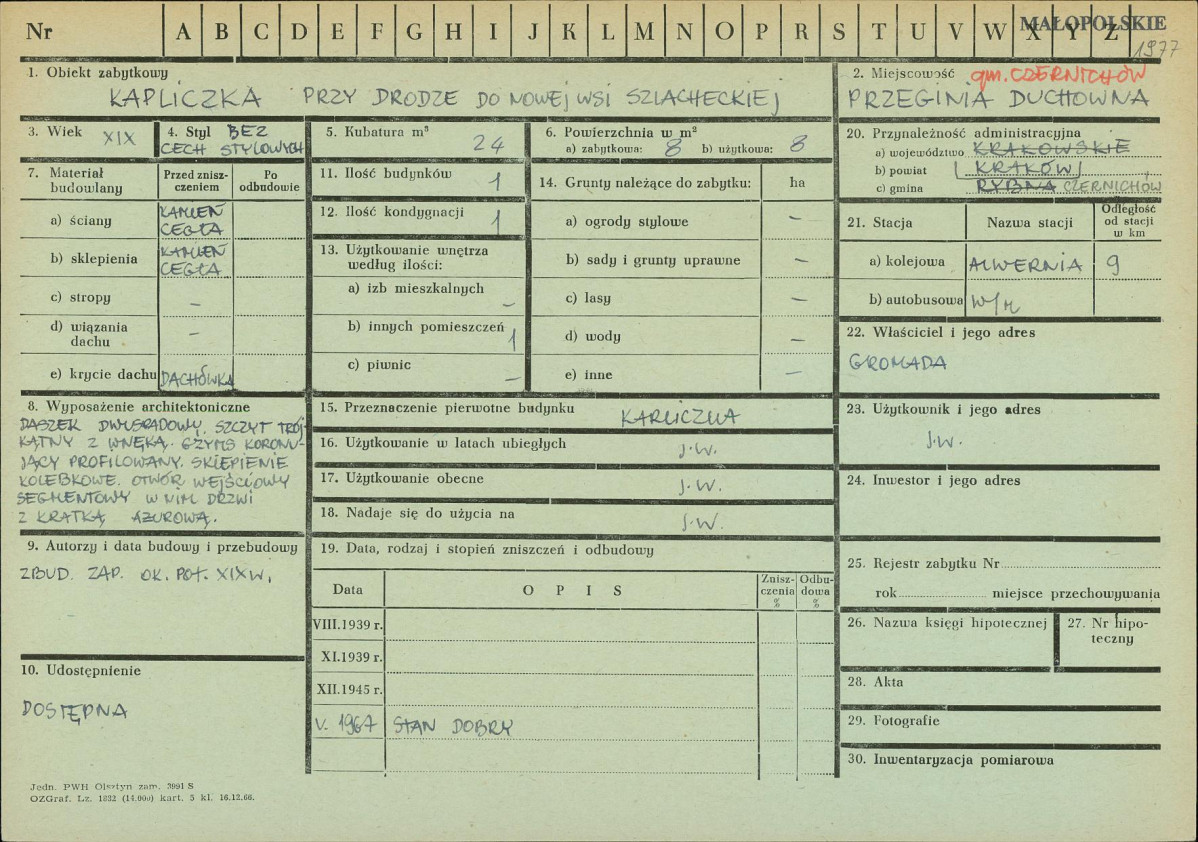 Nr A B C D E F G H I J K L M N O P R S T U V W X Y Z
MAŁOPOLSKIE
1977
1. Obiekt zabytkowy
KAPLICZKA PRZY DRODZE DO NOWEJ WSI SZLACHECKIEJ
2. Miejscowość gm. CZERNICHÓW
PRZEGINIA DUCHOWNA
3. Wiek XIX
4. Styl BEZ
CECH STYLOWYCH
5. Kubatura m³
24
6. Powierzchnia w m²
a) zabytkowa: 8 b) użytkowa: 8
7. Materiał
budowlany
Przed znisz-
czeniem
Po
odbudowie
a) ściany KAMIEŃ
CEGŁA
b) sklepienia KAMIEŃ
CEGŁA
c) stropy –
d) wiązania
dachu –
e) krycie dachu DACHÓWKA
8. Wyposażenie architektoniczne
DASZEK DWUSPADOWY, SZCZYT TRÓJ-
KĄTNY Z WNĘKĄ. GZYMS KORONU-
JĄCY PROFILOWANY. SKLEPIENIE
KOLEBKOWE. OTWÓR WEJŚCIOWY
SEGMENTOWY W NIM DRZWI
Z KRATKĄ AŻUROWĄ.
9. Autorzy i data budowy i przebudowy
ZBUD. ZAP. OK. POŁ. XIX W.
10. Udostępnienie
DOSTĘPNA
11. Ilość budynków 1
12. Ilość kondygnacji 1
13. Użytkowanie wnętrza
według ilości:
a) izb mieszkalnych –
b) innych pomieszczeń 1
c) piwnic –
14. Grunty należące do zabytku: ha
a) ogrody stylowe –
b) sady i grunty uprawne –
c) lasy –
d) wody –
e) inne –
15. Przeznaczenie pierwotne budynku KAPLICZKA
16. Użytkowanie w latach ubiegłych J.W.
17. Użytkowanie obecne J.W.
18. Nadaje się do użycia na J.W.
19. Data, rodzaj i stopień zniszczeń i odbudowy
Data OPIS Znisz-
czenia
% Odbu-
dowa
%
VIII.1939 r.
XI.1939 r.
XII.1945 r.
V. 1967 STAN DOBRY
20. Przynależność administracyjna
a) województwo KRAKOWSKIE
b) powiat KRAKÓW
c) gmina RYBNA CZERNICHÓW
21. Stacja Nazwa stacji Odległość
od stacji
w km
a) kolejowa ALWERNIA 9
b) autobusowa W/M
22. Właściciel i jego adres
GROMADA
23. Użytkownik i jego adres
J.W.
24. Inwestor i jego adres
25. Rejestr zabytku Nr
rok miejsce przechowywania
26. Nazwa księgi hipotecznej
27. Nr hipo-
teczny
28. Akta
29. Fotografie
30. Inwentaryzacja pomiarowa
Jedn. PWH Olsztyn zam. 3991 S
OZGraf. Lz. 1832 (14.000) kart. 3 kl. 16.12.66.